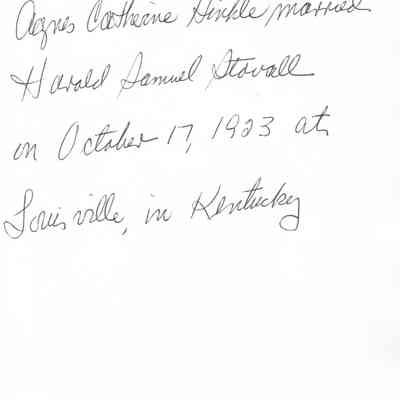 Agnes Catherine Hinkle married
Harold Samuel Stovall
on October 17, 1923 at
Louisville, in Kentucky